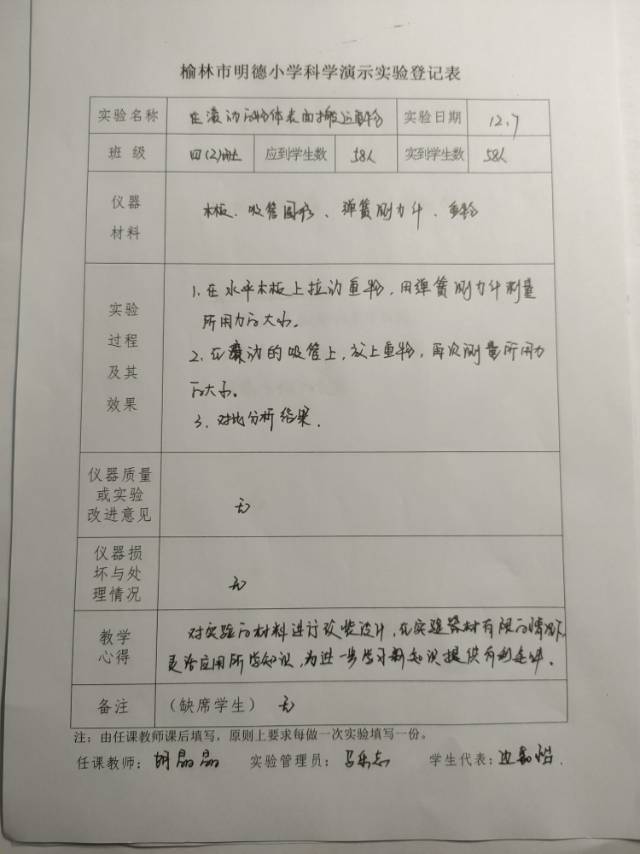 榆林市明德小学科学演示实验登记表
实验名称 在滚动的物体表面搬运重物 实验日期 12.7
班 级 四(2)班 应到学生数 58人 实到学生数 58人
仪器
材料
木板、吸管图形、弹簧测力计、重物
实验
过程
及其
效果
1.在水平木板上拉动重物,用弹簧测力计测量
所用力的大小。
2.在滚动的吸管上,放上重物,再次测量所用力
的大小。
3.对比分析结果.
仪器质量
或实验
改进意见
无
仪器损
坏与处
理情况
无
教学
心得
对实验的材料进行改装设计,在实验器材有限的情况下
灵活应用所学知识,为进一步学习新知识提供有利条件。
备注 (缺席学生) 无
注:由任课教师课后填写,原则上要求每做一次实验填写一份。
任课教师: 胡晶晶 实验管理员: 学生代表: